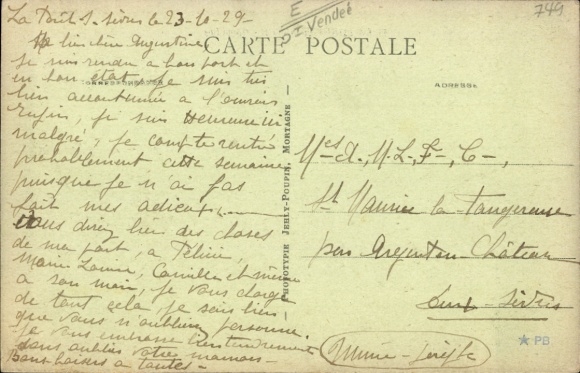 La Bût S. Sèvres le 23-10-29-
Ma bien chère Argentine
Je suis rendu a bon port et
en bon état, je suis très
bien accoutumée a l'envers
Enfin, je suis Heureuse ici
malgré, je compte rentré
probablement cette semaine
puisque je n'ai pas
fait mes adieux,
Vous direz bien des choses
de ma part, a Félicie,
Marie Louise, Camille et même
a son mari, je vous charge
de tout cela, je sais bien
que vous n'oublierez personne.
Je vous embrasse bien tendrement
sans oublier votre maman-
Bons baisers a toutes-
E
DI Vendée
749
CARTE POSTALE
CORRESPONDANCE
ADRESSE
PHOTOTYPIE JEHLY-POUPIN, MORTAGNE —
Mes A, M, L, F-, C-,
St Maurice la Fougereuse
par Argenton-Château
Deux-Sèvres
PB